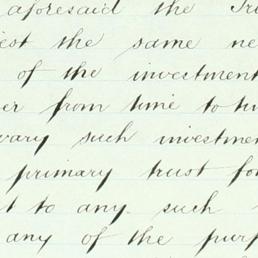 aforesaid the Tru
est the same ne
of the investment
er from time to tim
vary such investmen
primary trust for
t to any such
any of the purp